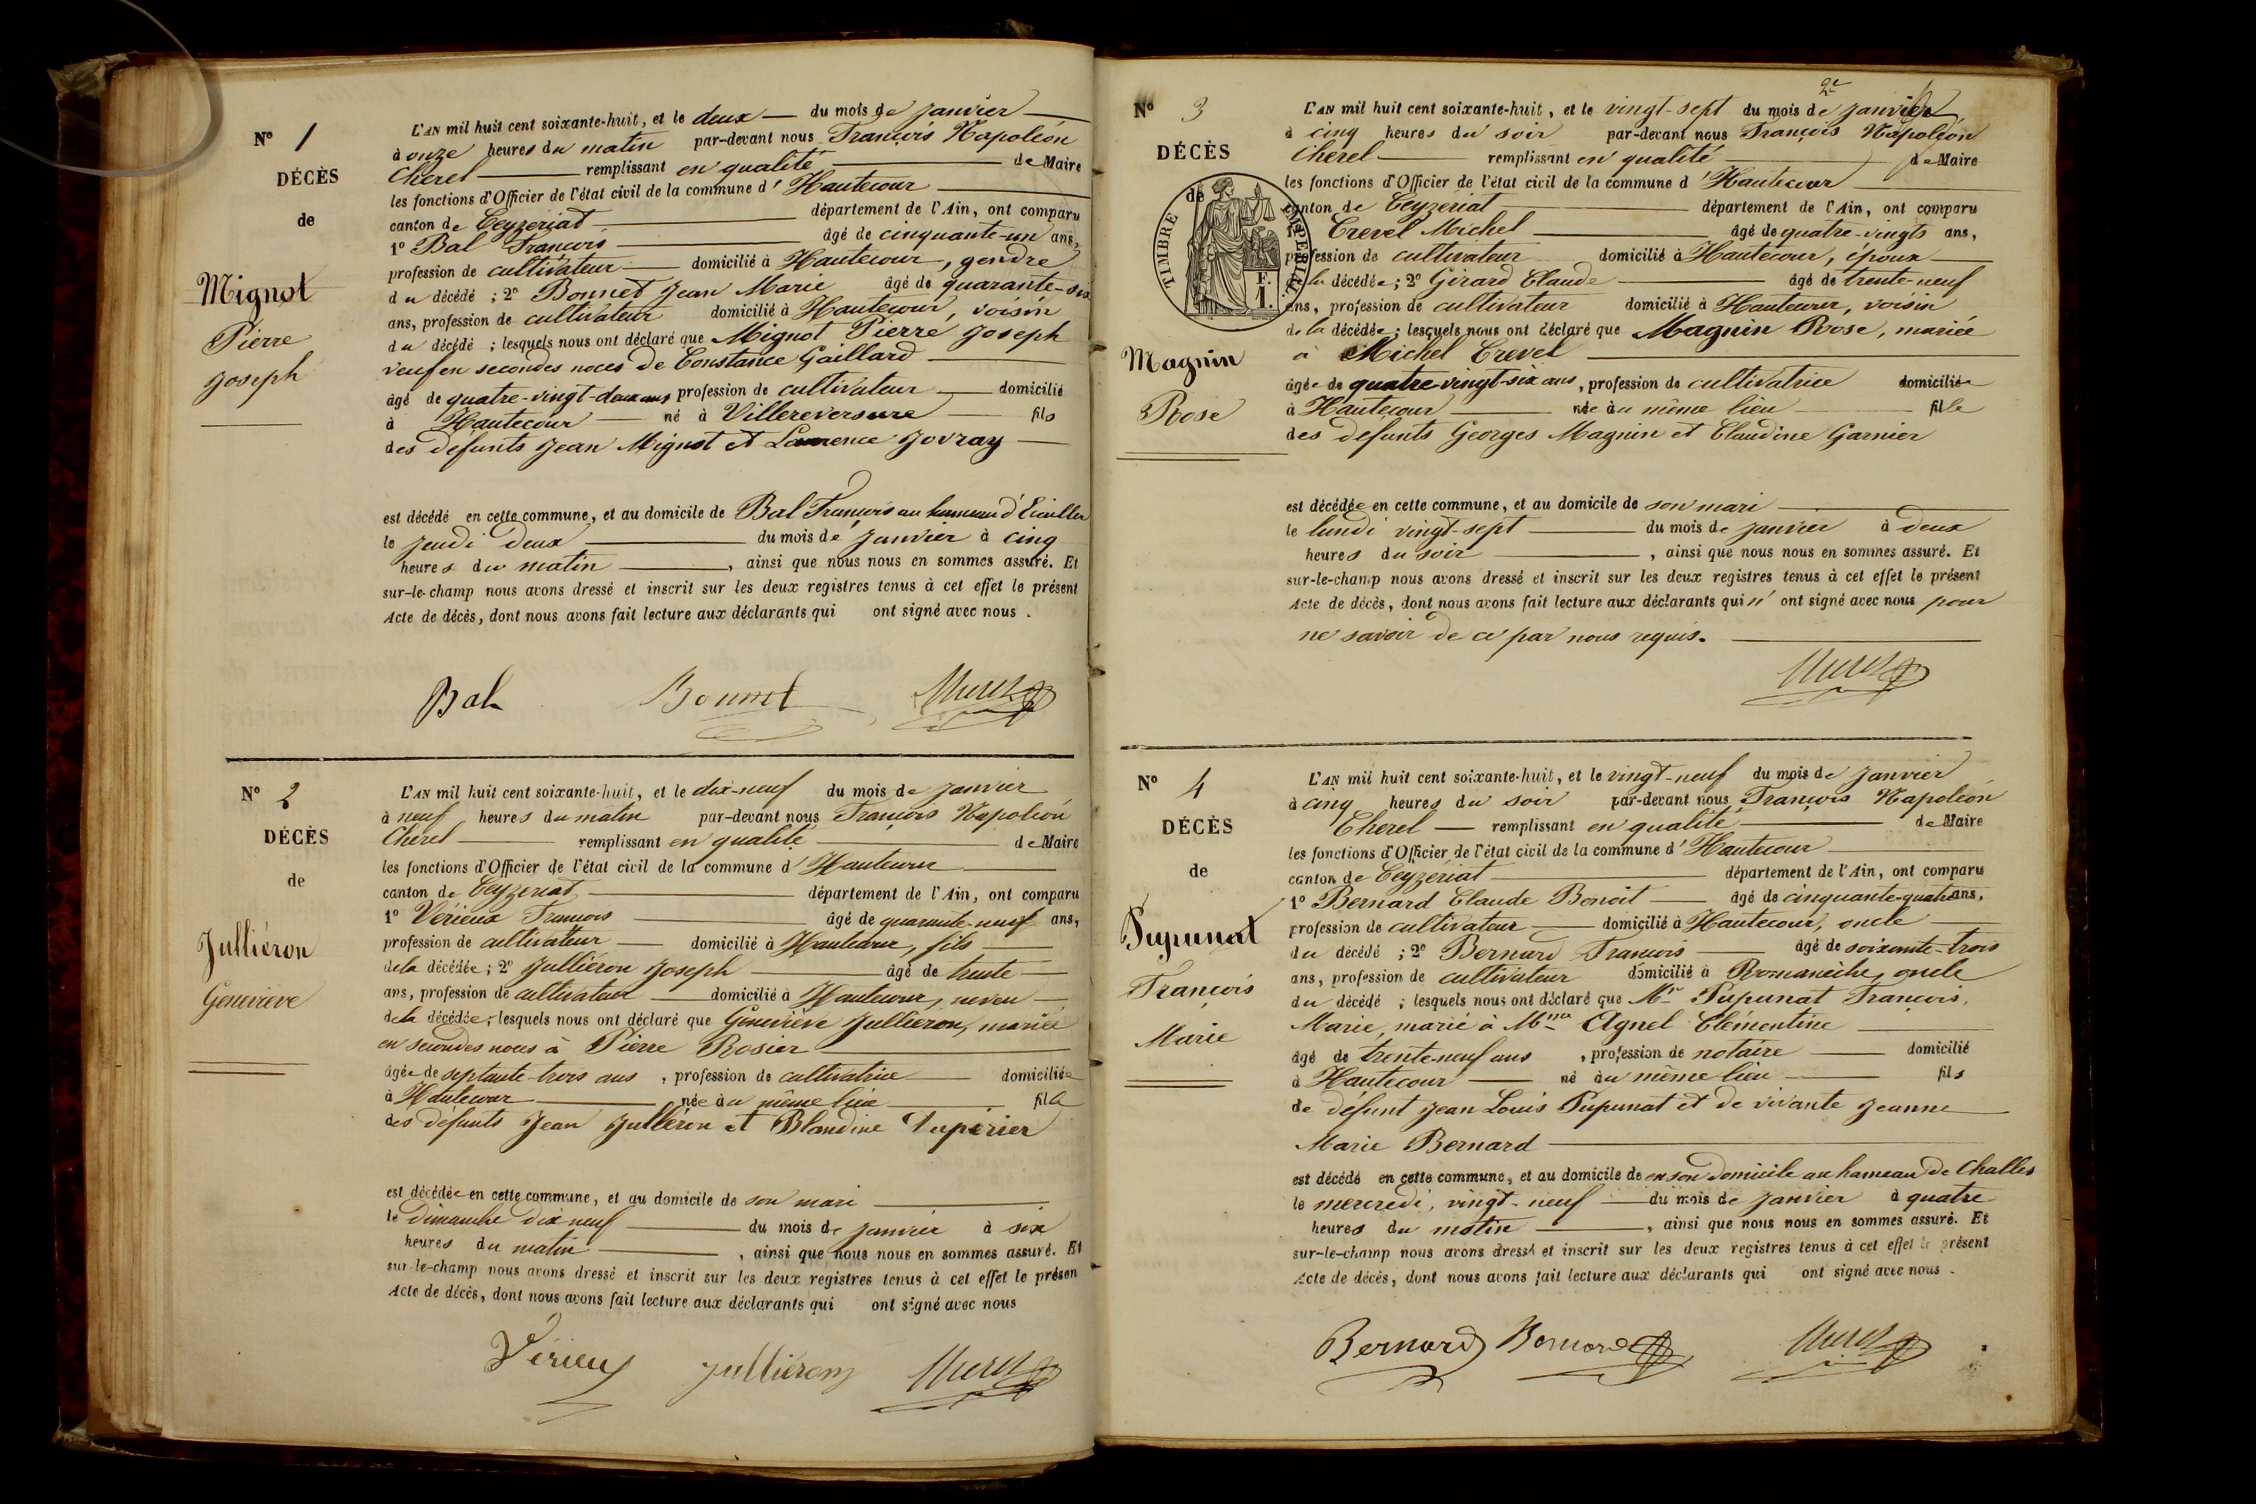 Nº 1
DÉCÈS
de
Mignot
Pierre
Joseph
L'AN mil huit cent soixante-huit, et le deux du mois de Janvier
à onze heures du matin par-devant nous François Napoléon
Cherel remplissant en qualité de Maire
les fonctions d'Officier de l'état civil de la commune d'Hautecour
canton de Ceyzeriat département de l'Ain, ont comparu
1º Bal François âgé de cinquante-un ans,
profession de cultivateur domicilié à Hautecour, gendre
du décédé ; 2º Bonnet Jean Marie âgé de quarante-six
ans, profession de cultivateur domicilié à Hautecour, voisin
du décédé ; lesquels nous ont déclaré que Mignot Pierre Joseph
veuf en secondes noces de Constance Gaillard
âgé de quatre-vingt-deux ans profession de cultivateur domicilié
à Hautecour né à Villereversure fils
des défunts Jean Mignot et Laurence Jovray
est décédé en cette commune, et au domicile de Bal François au hameau d'
le jeudi deux du mois de Janvier à cinq
heures du matin , ainsi que nous nous en sommes assuré. Et
sur-le-champ nous avons dressé et inscrit sur les deux registres tenus à cet effet le présent
Acte de décès, dont nous avons fait lecture aux déclarants qui ont signé avec nous .
Bal Bonnet
Nº 2
DÉCÈS
de
Julliéron
Geneviève
L'AN mil huit cent soixante-huit, et le dix-neuf du mois de Janvier
à neuf heures du matin par-devant nous François Napoléon
Cherel remplissant en qualité de Maire
les fonctions d'Officier de l'état civil de la commune d'Hautecour
canton de Ceyzeriat département de l'Ain, ont comparu
1º Vérieux François âgé de quarante-neuf ans,
profession de cultivateur domicilié à Hautecour, fils
de la décédée ; 2º Julliéron Joseph âgé de trente
ans, profession de cultivateur domicilié à Hautecour, neveu
de la décédée ; lesquels nous ont déclaré que Geneviève Julliéron, mariée
en secondes noces à Pierre Rosier
âgée de septante-trois ans , profession de cultivatrice domiciliée
à Hautecour née au même lieu fille
des défunts Jean Julliéron et Blandine Dupérier
est décédée en cette commune, et au domicile de son mari
le dimanche dix neuf du mois de Janvier à six
heures du matin , ainsi que nous nous en sommes assuré. Et
sur-le-champ nous avons dressé et inscrit sur les deux registres tenus à cet effet le présen
Acte de décès, dont nous avons fait lecture aux déclarants qui ont signé avec nous
Vérieux Julliéron
2e
Nº 3
DÉCÈS
de
TIMBRE IMPÉRIAL
F.
1.
Magnin
Rose
L'AN mil huit cent soixante-huit, et le vingt-sept du mois de Janvier
à cinq heures du soir par-devant nous François Napoléon
Cherel remplissant en qualité de Maire
les fonctions d'Officier de l'état civil de la commune d'Hautecour
canton de Ceyzériat département de l'Ain, ont comparu
Crevel Michel âgé de quatre-vingts ans,
profession de cultivateur domicilié à Hautecour, époux
la décédée ; 2º Girard Claude âgé de trente-neuf
ans, profession de cultivateur domicilié à Hautecour, voisin
de la décédée ; lesquels nous ont déclaré que Magnin Rose, mariée
à Michel Crevel
âgée de quatre-vingt-six ans , profession de cultivatrice domiciliée
à Hautecour née au même lieu fille
des défunts Georges Magnin et Claudine Garnier
est décédée en cette commune, et au domicile de son mari
le lundi vingt-sept du mois de Janvier à deux
heures du soir , ainsi que nous nous en sommes assuré. Et
sur-le-champ nous avons dressé et inscrit sur les deux registres tenus à cet effet le présent
Acte de décès, dont nous avons fait lecture aux déclarants qui n'ont signé avec nous pour
ne savoir de ce par nous requis.
Nº 4
DÉCÈS
de
Pupunat
François
Marie
L'AN mil huit cent soixante-huit, et le vingt-neuf du mois de Janvier
à cinq heures du soir par-devant nous François Napoléon
Cherel remplissant en qualité de Maire
les fonctions d'Officier de l'état civil de la commune d'Hautecour
canton de Ceyzériat département de l'Ain, ont comparu
1º Bernard Claude Benoit âgé de cinquante-quatre ans,
profession de cultivateur domicilié à Hautecour, oncle
du décédé ; 2º Bernard François âgé de soixante-trois
ans, profession de cultivateur domicilié à Romanèche, oncle
du décédé ; lesquels nous ont déclaré que Mr Pupunat François,
Marie, marié à Mme Agnel Clémentine
âgé de trente-neuf ans , profession de notaire domicilié
à Hautecour né au même lieu fils
de défunt Jean Louis Pupunat et de vivante Jeanne
Marie Bernard
est décédé en cette commune, et au domicile de en son domicile au hameau de Challes
le mercredi, vingt-neuf du mois de Janvier à quatre
heures du matin , ainsi que nous nous en sommes assuré. Et
sur-le-champ nous avons dressé et inscrit sur les deux registres tenus à cet effet le présent
Acte de décès, dont nous avons fait lecture aux déclarants qui ont signé avec nous .
Bernard Bernard